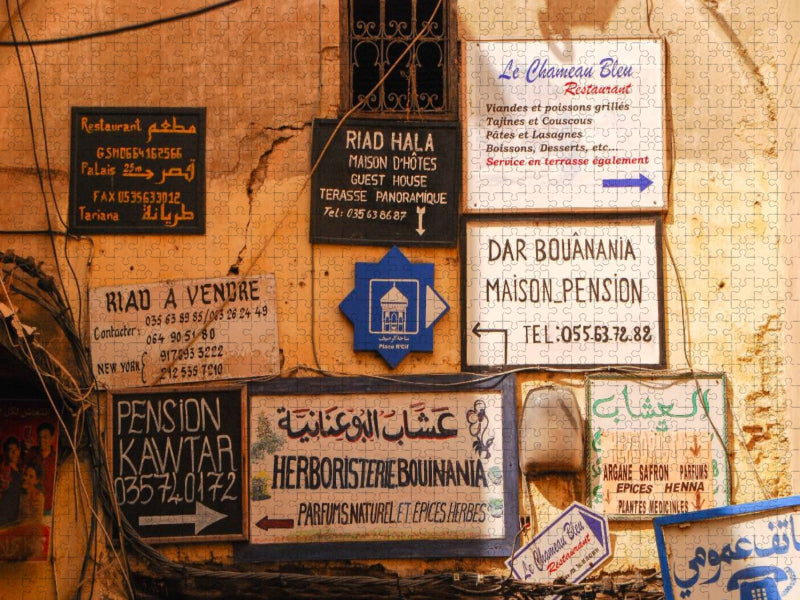 Restaurant مطعم
GSM0664162566
Palais 25m قصر
FAX 0535633012
Tariana طريانة
RIAD HALA
MAISON D'HÔTES
GUEST HOUSE
TERASSE PANORAMIQUE
Tel: 035638687
Le Chameau Bleu
Restaurant
Viandes et poissons grillés
Tajines et Couscous
Pâtes et Lasagnes
Boissons, Desserts, etc...
Service en terrasse également
DAR BOUÂNANIA
MAISON_PENSION
TEL:055.63.72.82
ساحة الرصيف
Place R'Cif
RIAD À VENDRE
Contacter: 035 63 89 85/063 26 24 49
064 90 51 80
NEW YORK { 917893 3222
212 535 7210
PENSION
KAWTAR
035740172
عشاب البوعنانية
HERBORISTERIE BOUINANIA
PARFUMS NATUREL ET ÉPICES HERBES
العشاب
ARGANE SAFRON PARFUMS
EPICES HENNA
PLANTES MEDICINLES
Le Chameau Bleu
Restaurant
هاتف عمومي